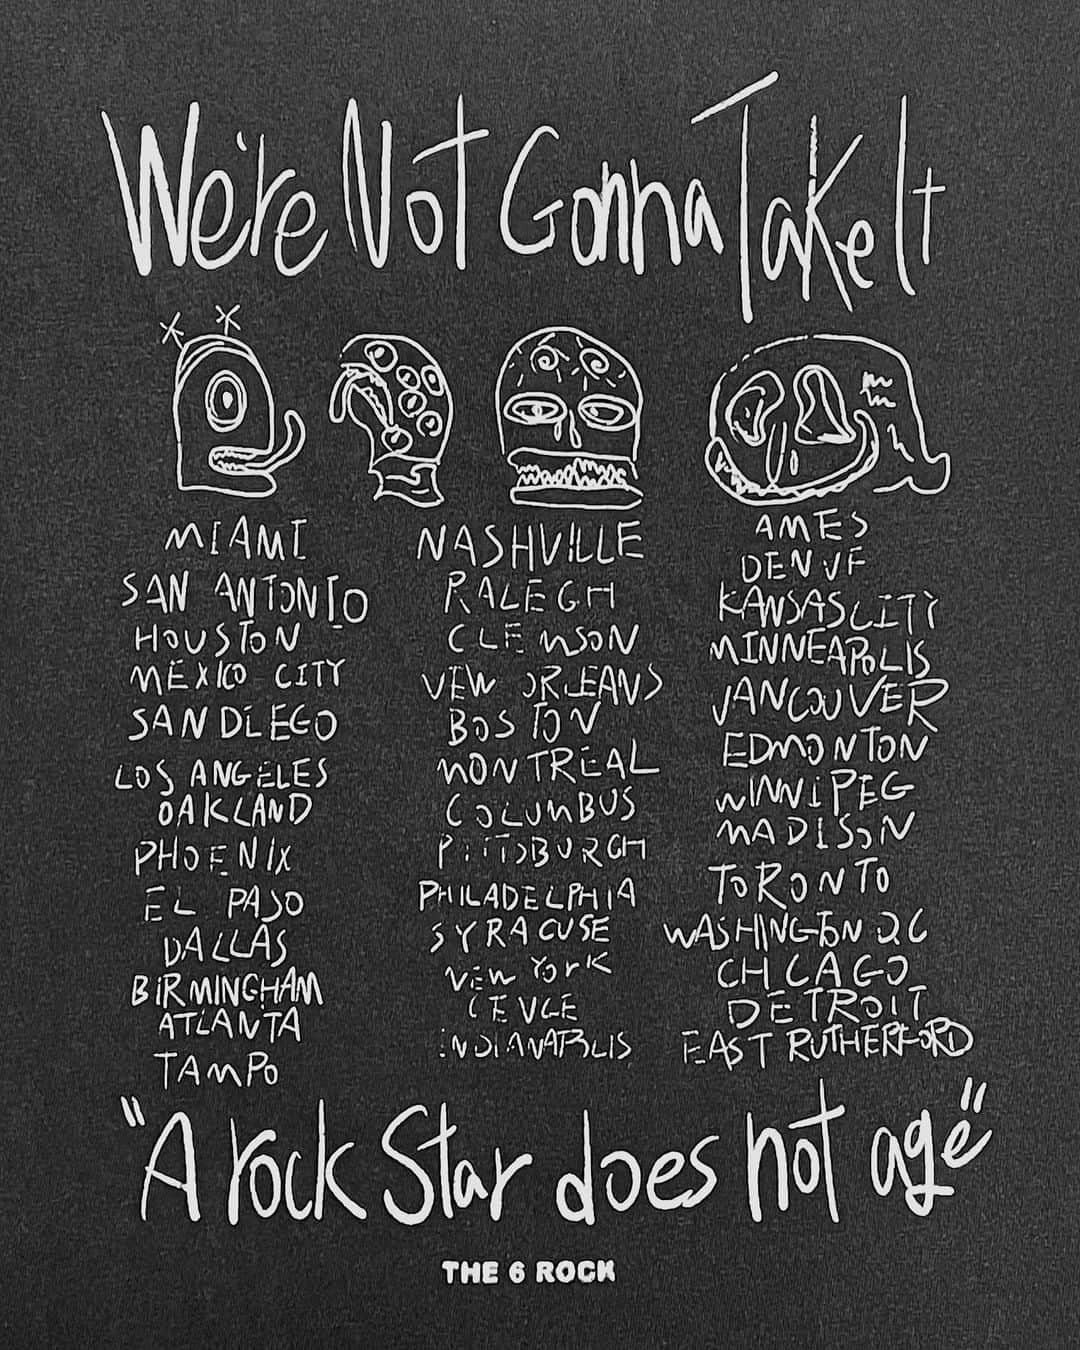 We're Not Gonna Take It
MIAMI
SAN ANTONIO
HOUSTON
MEXICO CITY
SAN DIEGO
LOS ANGELES
OAKLAND
PHOENIX
EL PASO
DALLAS
BIRMINGHAM
ATLANTA
TAMPO
NASHVILLE
RALEGH
CLEMSON
NEW ORLEANS
BOSTON
MONTREAL
COLUMBUS
PITTSBURGH
PHILADELPHIA
SYRACUSE
NEW YORK
INDIANAPOLIS
AMES
KANSAS CITY
MINNEAPOLIS
VANCOUVER
EDMONTON
WINNIPEG
MADISON
TORONTO
WASHINGTON DC
CHICAGO
DETROIT
EAST RUTHERFORD
"A rock Star does not age"
THE 6 ROCK